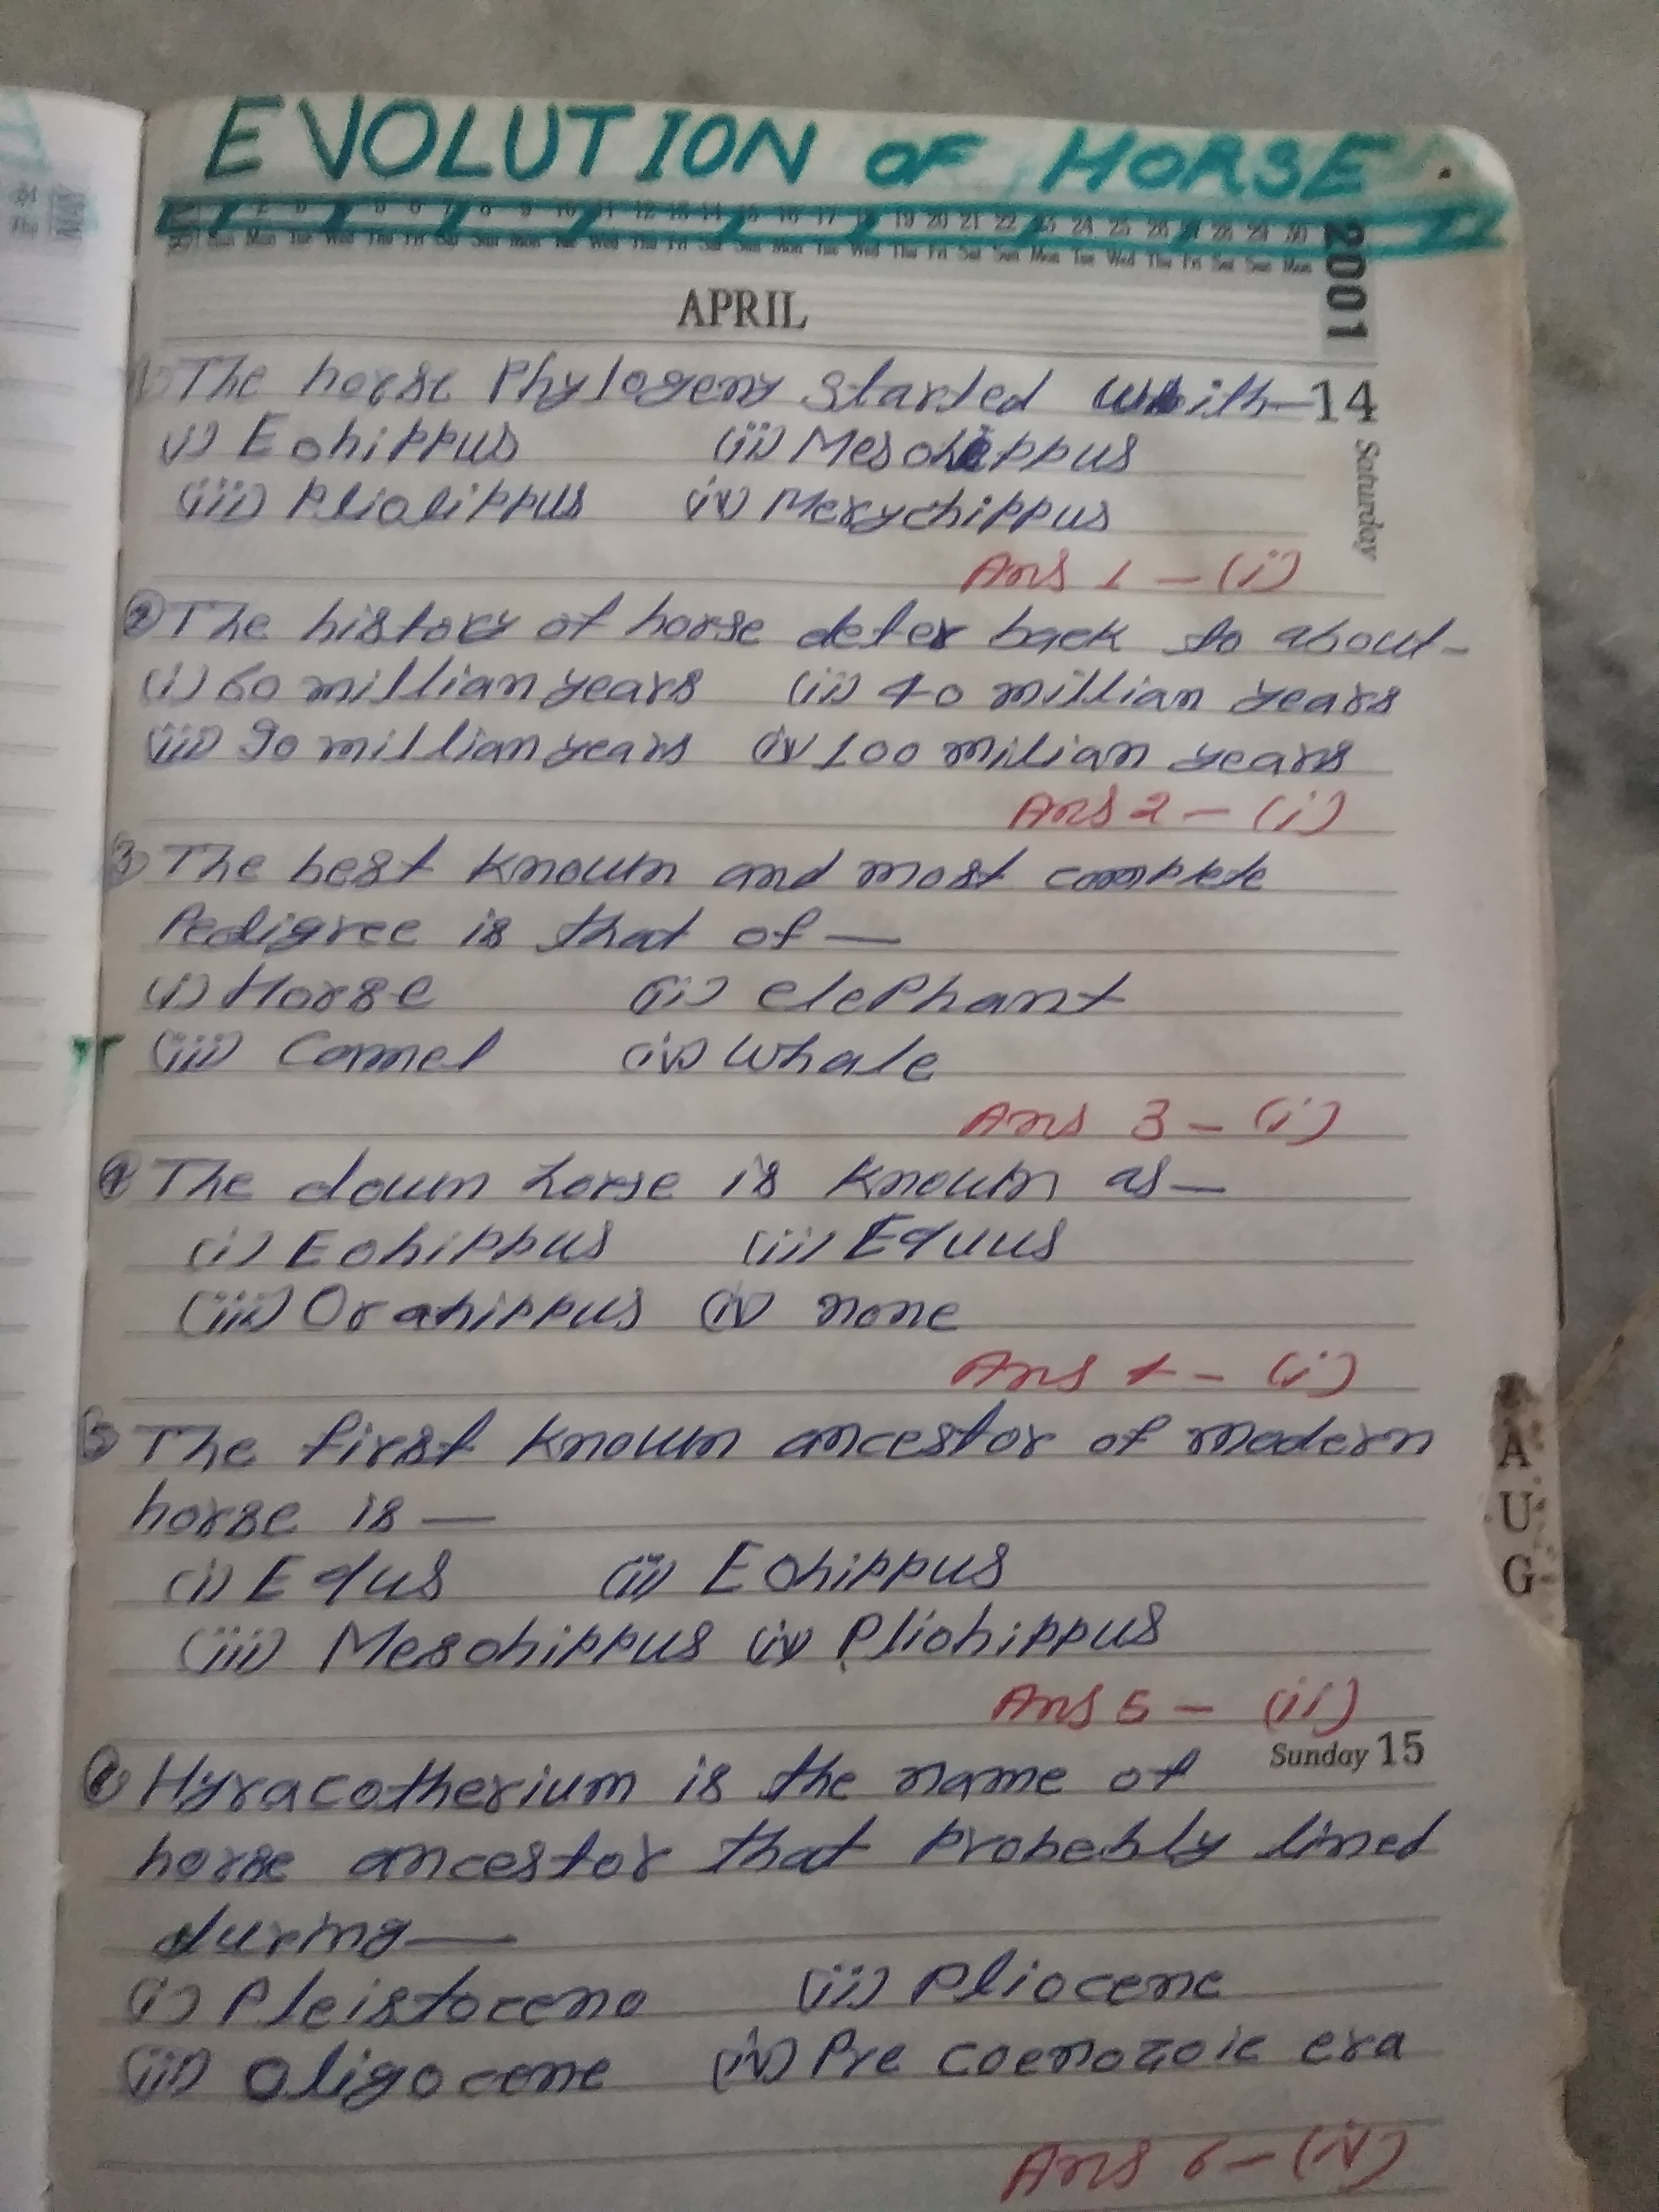 EVOLUTION OF HORSE
2001
APRIL
The horse Phylogeny Started with— 14
Saturday
(i) Eohippus (ii) Mesohippus
(iii) Plialippus (iv) Merychippus
Ans 1 — (i)
② The history of horse deter back to about—
(i) 60 millian years (ii) 40 millian years
(iii) 90 millian years (iv) 100 milian years
Ans 2 — (i)
③ The best known and most complete
Pedigree is that of —
(i) Horse (ii) elephant
(iii) Camel (iv) whale
Ans 3 — (i)
④ The doum horse is known as —
(i) Eohippus (ii) Equus
(iii) Orahippus (iv) none
Ans 4 — (i)
⑤ The first known ancestor of modern
horse is —
(i) Equs (ii) Eohippus
(iii) Mesohippus (iv) Pliohippus
Ans 5 — (ii)
Sunday 15
⑥ Hyracotherium is the name of
horse ancestor that probebly lined
during —
(i) Pleistoceno (ii) Pliocene
(iii) Oligocene (iv) Pre coenozoic era
Ans 6 — (iv)
AUG